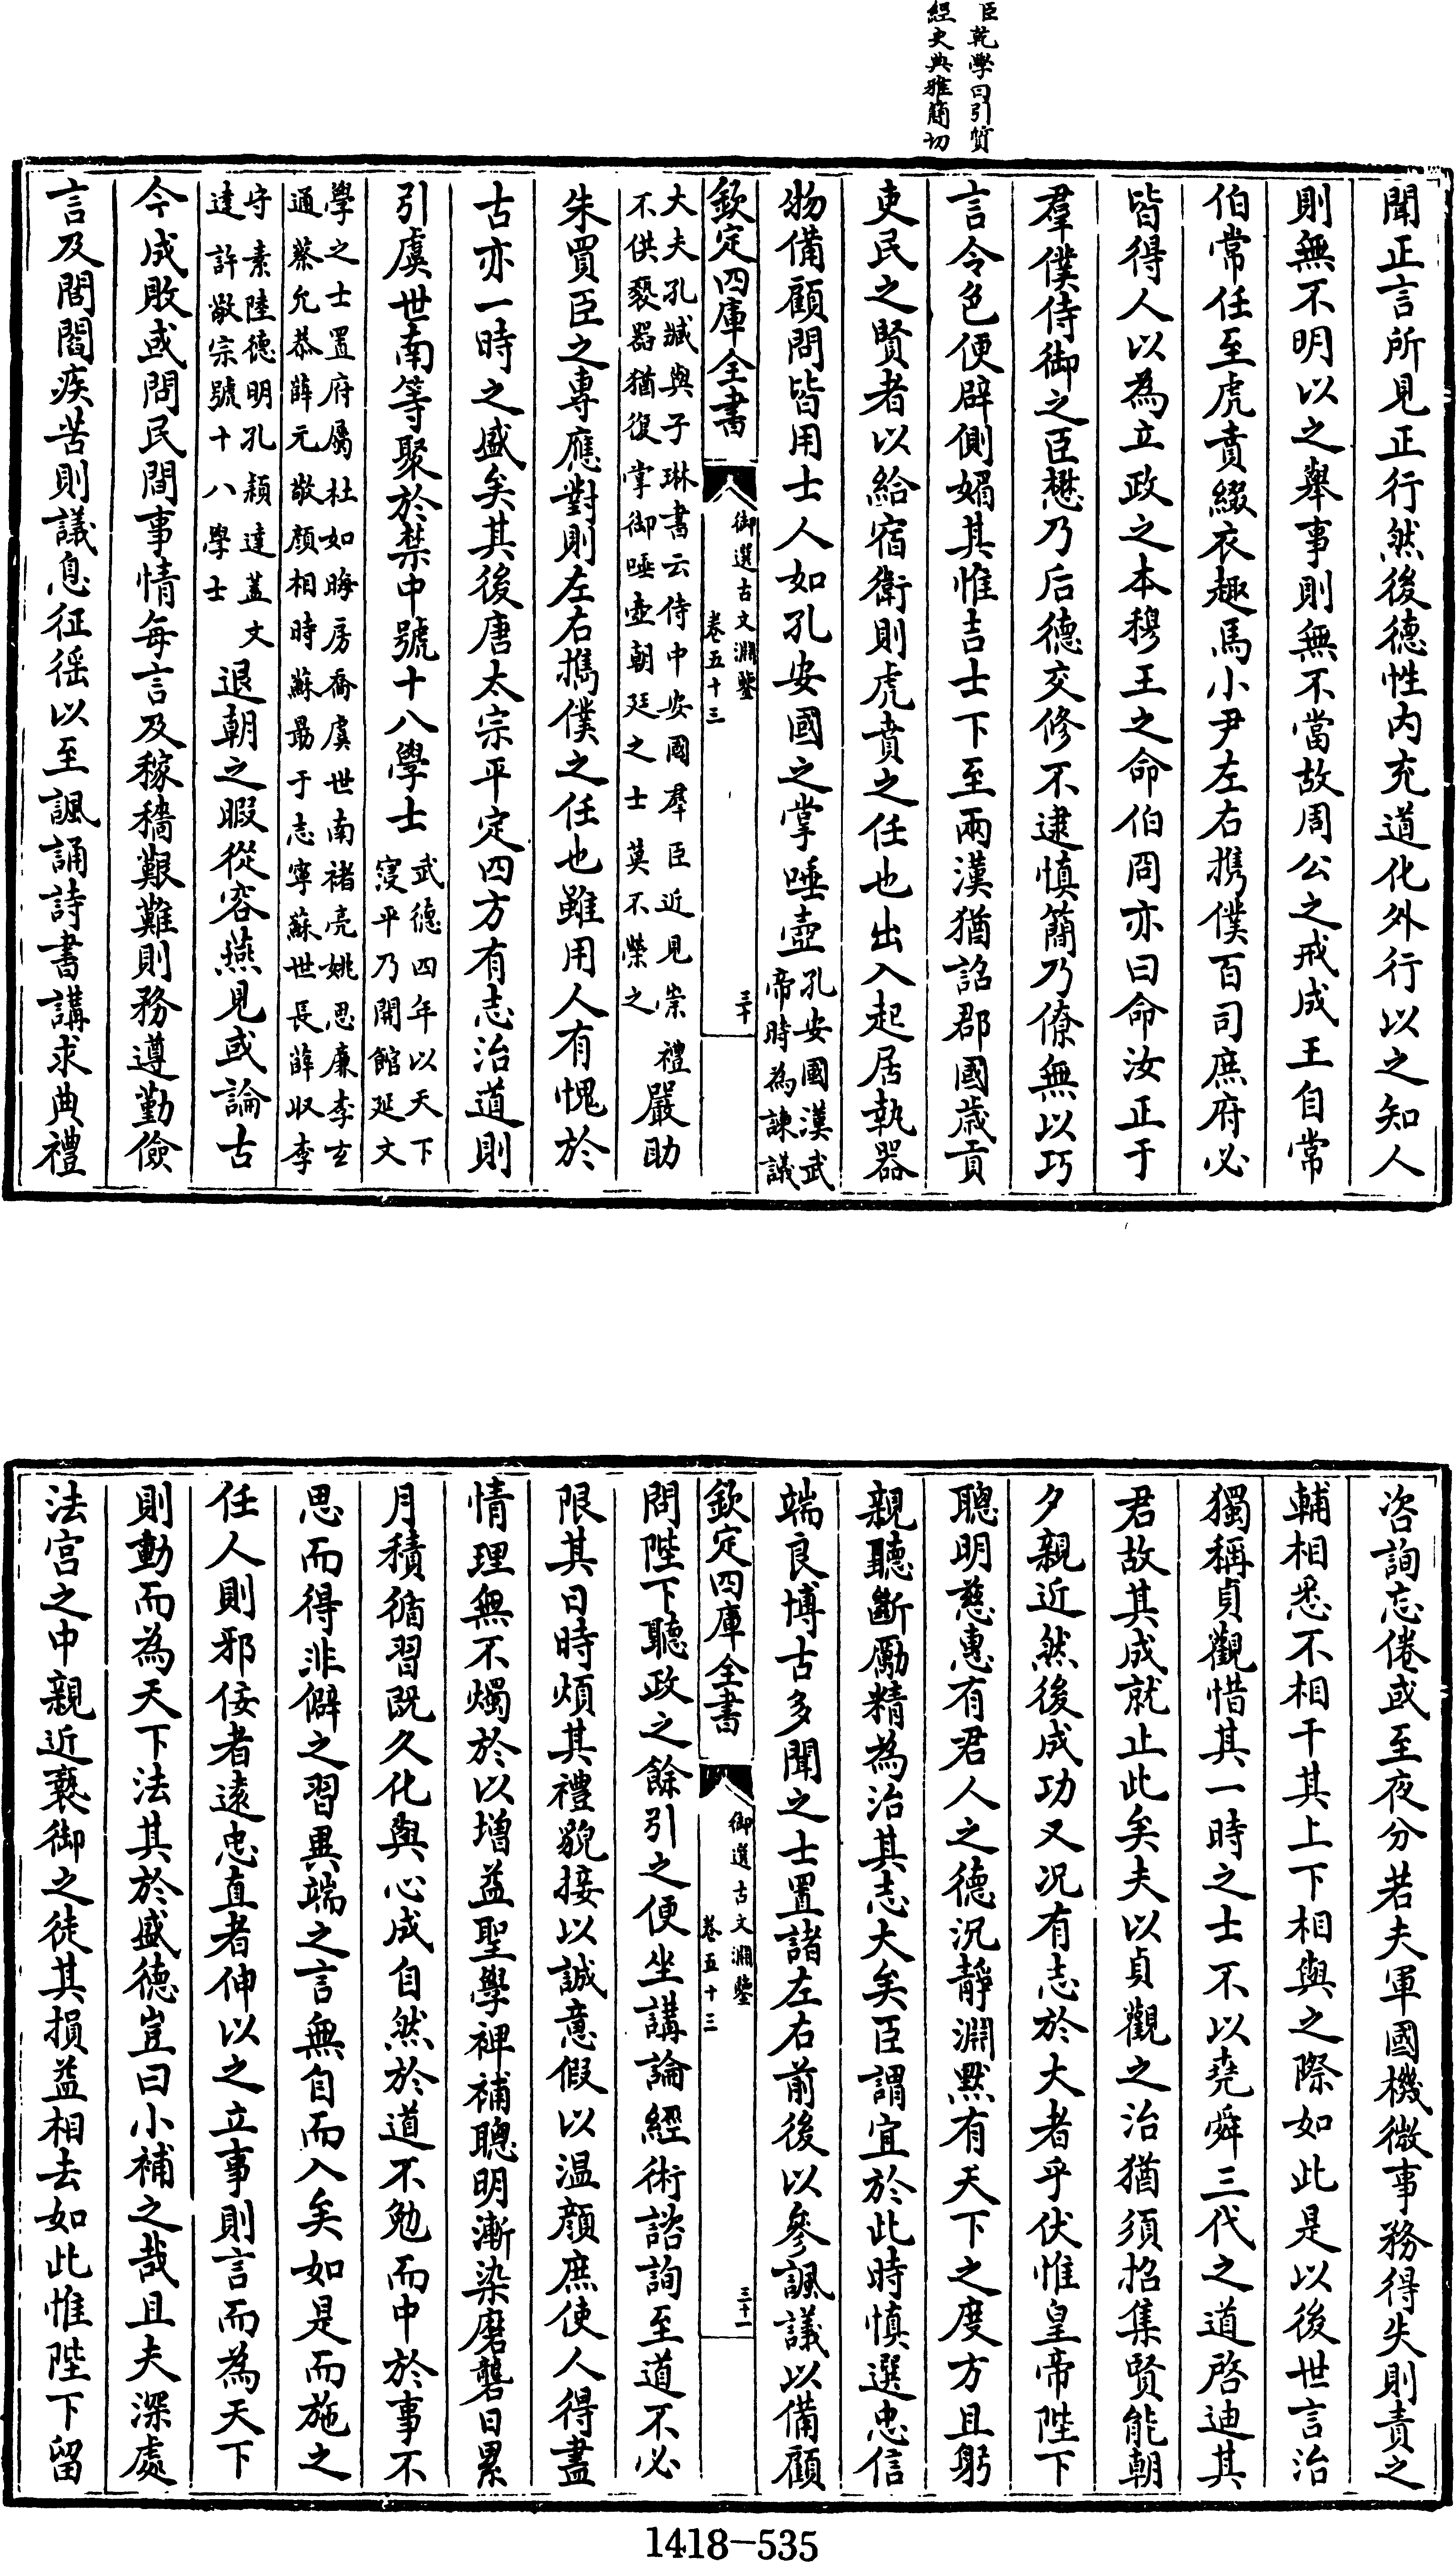 臣乾學曰引質
經史典雅簡切
聞正言所見正行然後德性内充道化外行以之知人
則無不明以之舉事則無不當故周公之戒成王自常
伯常任至虎賁綴衣趣馬小尹左右攜僕百司庶府必
皆得人以為立政之本穆王之命伯冏亦曰命汝正于
羣僕侍御之臣懋乃后德交修不逮慎簡乃僚無以巧
言令色便辟側媚其惟吉士下至兩漢猶詔郡國歲貢
吏民之賢者以給宿衛則虎賁之任也出入起居執器
物備顧問皆用士人如孔安國之掌唾壺孔安國漢武
帝時為諫議
欽定四庫全書
御選古文淵鑒
卷五十三
三十
大夫孔臧與子琳書云侍中安國羣臣近見崇禮
不供褻器猶復掌御唾壺朝廷之士莫不榮之
嚴助
朱買臣之專應對則左右攜僕之任也雖用人有愧於
古亦一時之盛矣其後唐太宗平定四方有志治道則
引虞世南等聚於禁中號十八學士武德四年以天下
寖平乃開館延文
學之士置府屬杜如晦房喬虞世南褚亮姚思廉李玄
通蔡允恭薛元敬顏相時蘇勗于志寧蘇世長薛收李
守素陸德明孔穎達蓋文
達許敬宗號十八學士
退朝之暇從容燕見或論古
今成敗或問民間事情每言及稼穡艱難則務遵勤儉
言及閭閻疾苦則議息征徭以至諷誦詩書講求典禮
咨詢忘倦或至夜分若夫軍國機微事務得失則責之
輔相悉不相干其上下相與之際如此是以後世言治
獨稱貞觀惜其一時之士不以堯舜三代之道啓迪其
君故其成就止此矣夫以貞觀之治猶須招集賢能朝
夕親近然後成功又况有志於大者乎伏惟皇帝陛下
聰明慈惠有君人之德沉靜淵默有天下之度方且躬
親聽斷勵精為治其志大矣臣謂宜於此時慎選忠信
端良博古多聞之士置諸左右前後以參諷議以備顧
欽定四庫全書
御選古文淵鑒
卷五十三
三十一
問陛下聽政之餘引之便坐講論經術諮詢至道不必
限其日時煩其禮貌接以誠意假以温顏庶使人得盡
情理無不燭於以增益聖學裨補聰明漸染磨礱日累
月積循習既久化與心成自然於道不勉而中於事不
思而得非僻之習異端之言無自而入矣如是而施之
任人則邪佞者遠忠直者伸以之立事則言而為天下
則動而為天下法其於盛德豈曰小補之哉且夫深處
法宫之中親近褻御之徒其損益相去如此惟陛下留
1418-535